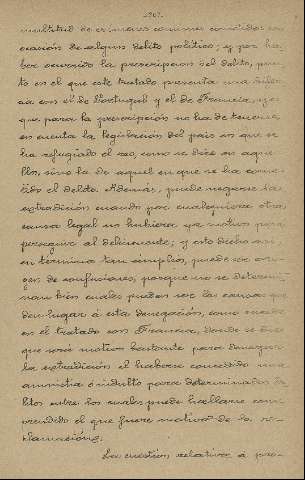 -207-
multitud de crímenes comunes cometidos en
ocasión de algun delito político; y por ha-
ber ocurrido la prescripcion del delito, pun-
to en el que este tratado presenta una diferen-
cia con el de Portugal y el de Francia, por-
que para la prescripción no ha de tenerse
en cuenta la legislación del pais en que se
ha refugiado el reo, como se dice en aque-
llos, sino la de aquel en que se ha come-
tido el delito. Además, puede negarse la
extradición cuando por cualquiera otra
causa legal no hubiera ya motivo para
perseguir al delincuente; y esto dicho así
en términos tan amplios, puede ser orí-
gen de confusiones, porque no se determi-
nan bien cuales puedan ser las causas que
den lugar á esta denegación, como sucede
en el tratado con Francia, donde se dice
que será motivo bastante para denegar
la extradición el haberse concedido una
amnistía ó indulto para determinados de-
litos entre los cuales puede hallarse com-
prendido el que fuere motivo de la re-
clamación.
La cuestion relativa á pro-